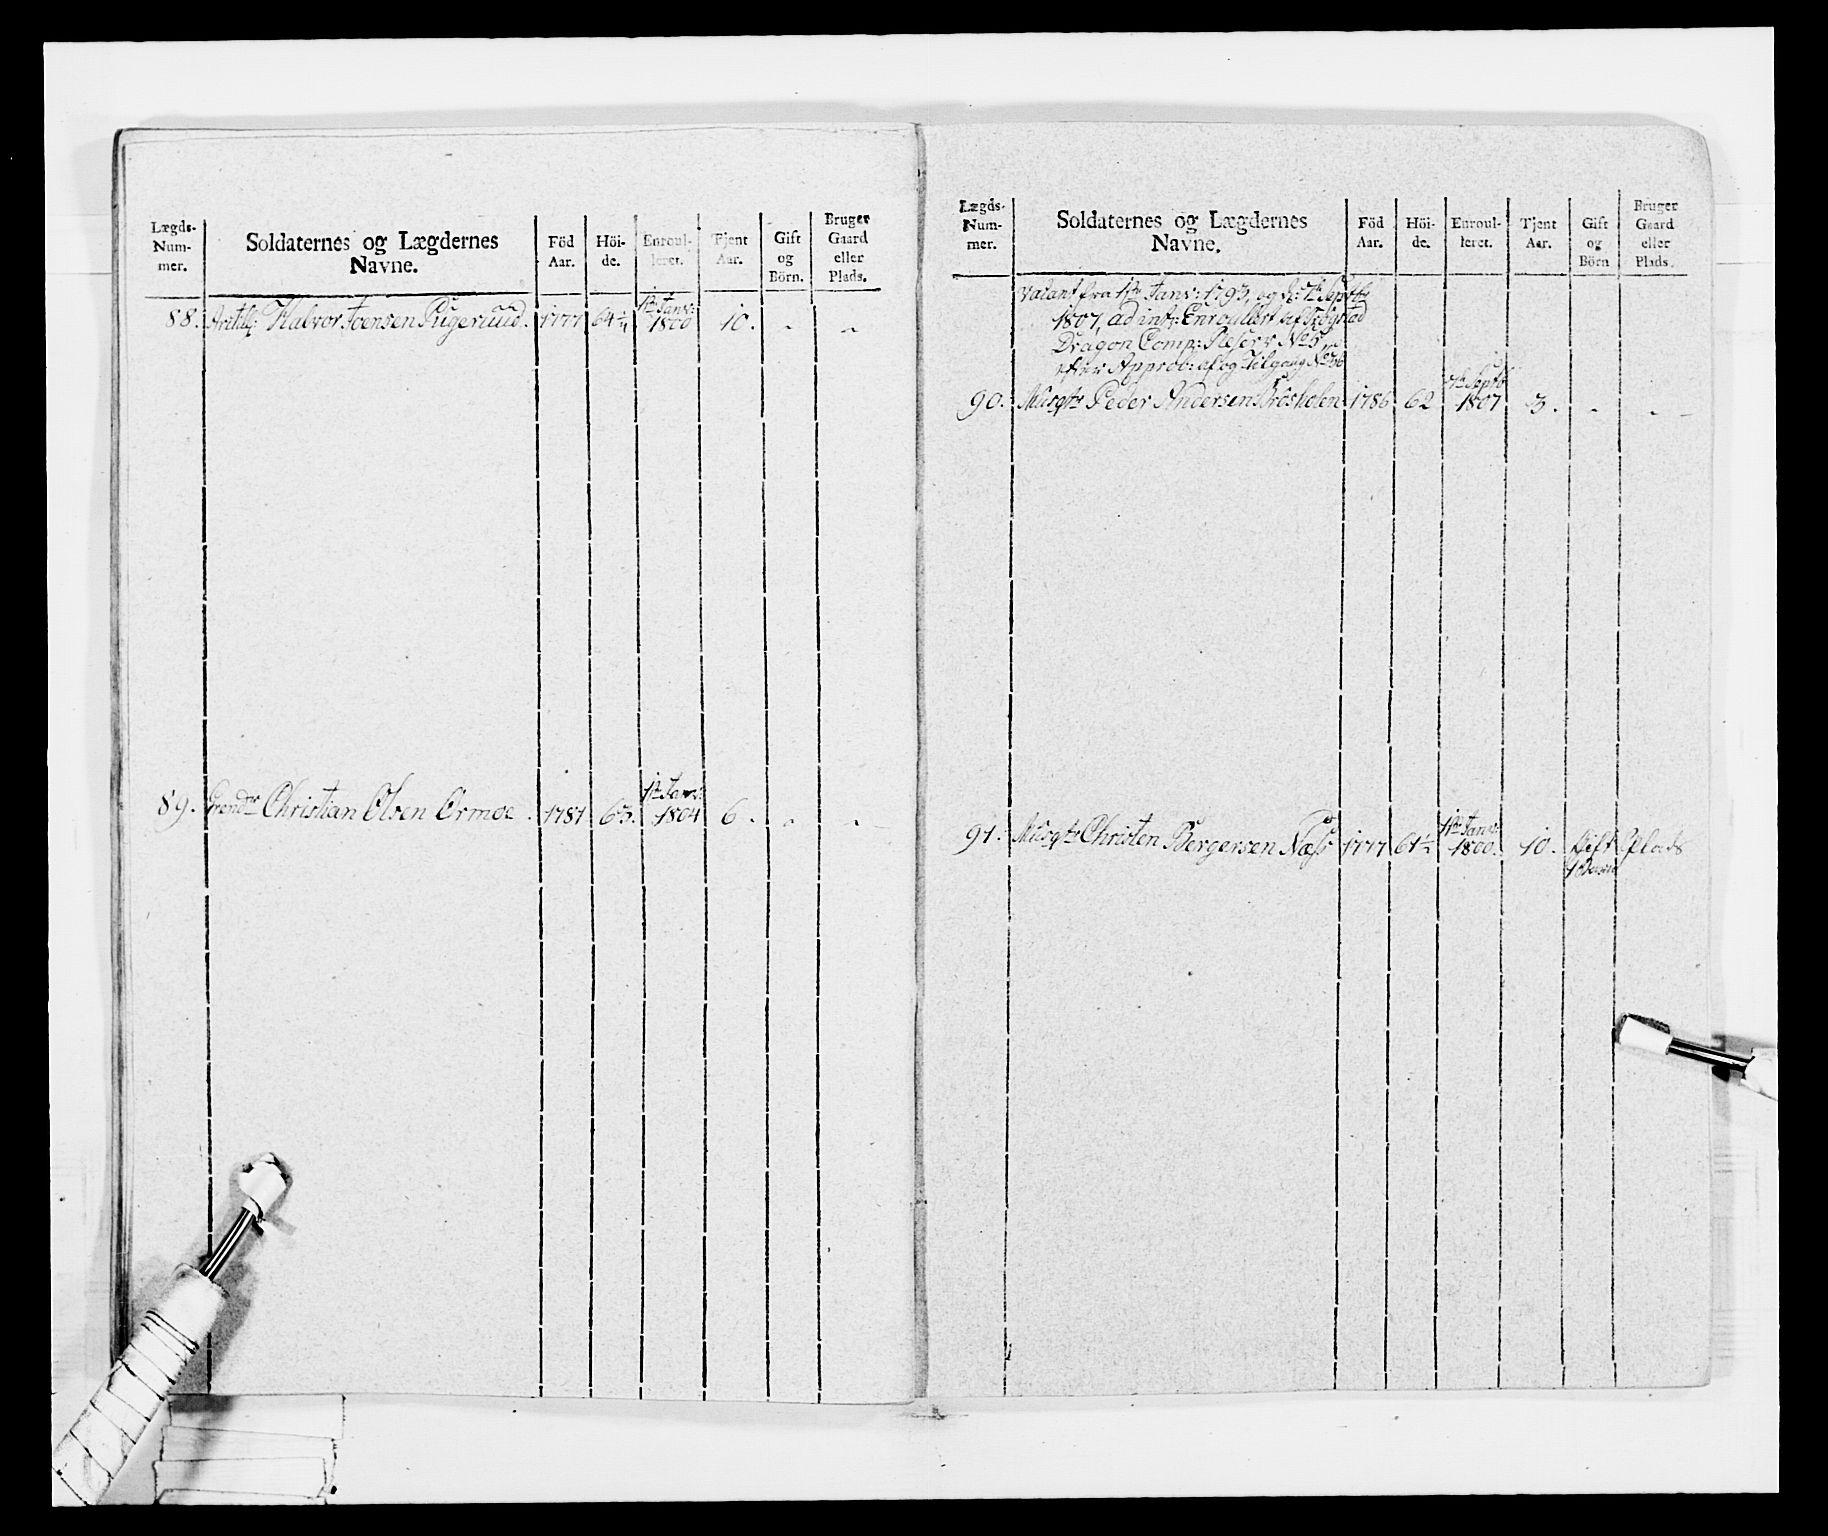 Lægds-Num-mer. Soldaternes og Lægdernes Navne. Föd Aar. Höi-de. Enroul-leret. Tjent Aar. Gift og Börn. Bruger Gaard eller Plads.
1te Janv:
88. Halvor Joensen Pugeruud. 1777 64 1800 10. " "
1te Janv:
89. Grendr Christian Olsen Ormoe. 1781 63. 1804 6. " "
Lægds-Num-mer. Soldaternes og Lægdernes Navne. Föd Aar. Höi-de. Enroul-leret. Tjent Aar. Gift og Börn Bruger Gaard eller Plads.
Vacant fra 1te Janv: 1793, og d: 7de Septbr
1807, ad int: Enroullert af
Dragon Comp: Reserv No 5
efter Approb: af og Tilgang No 36
7de Septb
90. Musqtr Peder Andersen 1786 62 1807 3. " "
1te Janv:
91. Musqtr Christen Bergersen Næss 1777 61½ 1800. 10. Gift Plads
1 Barn